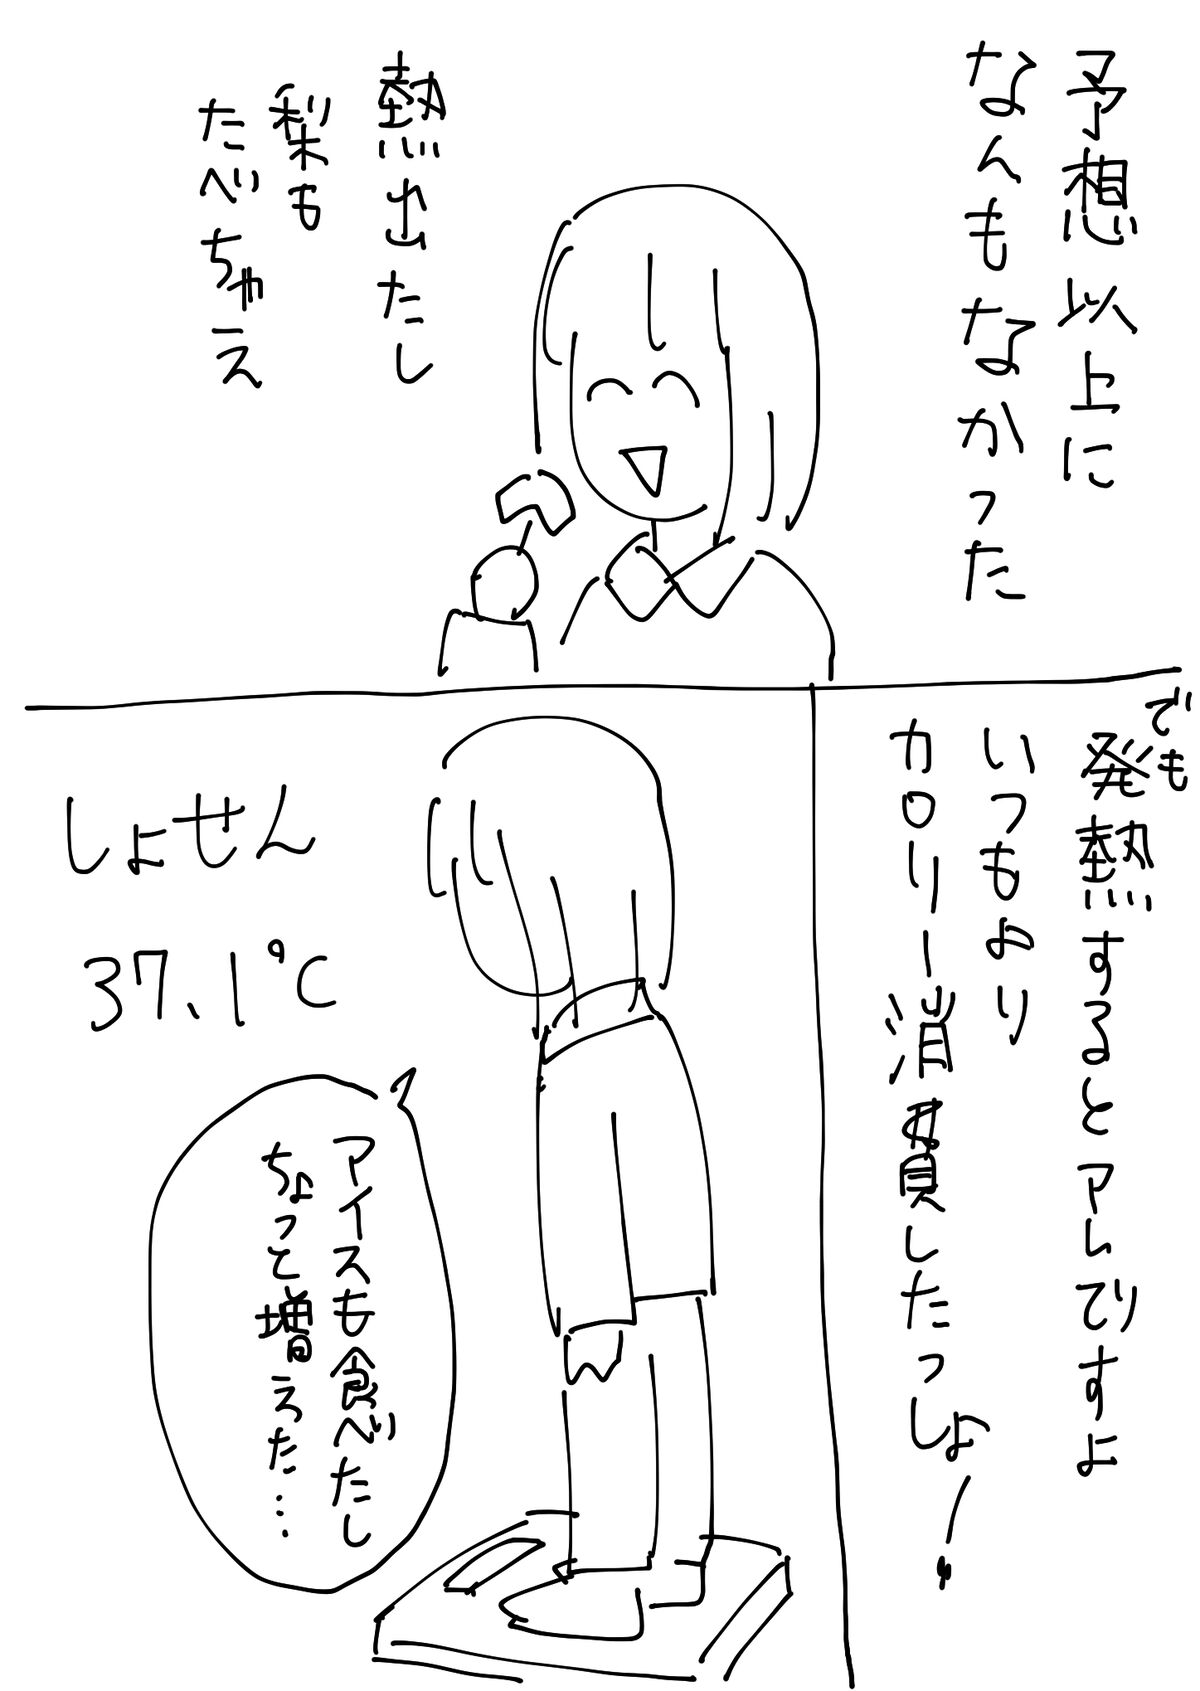 予想以上に
なんもなかった
熱出たし
梨も
たべちゃえ
でも
発熱するとアレですよ
いつもより
カロリー消費したっしょー!!
しょせん
37.1℃
アイスも食べたし
ちょっと増えた…